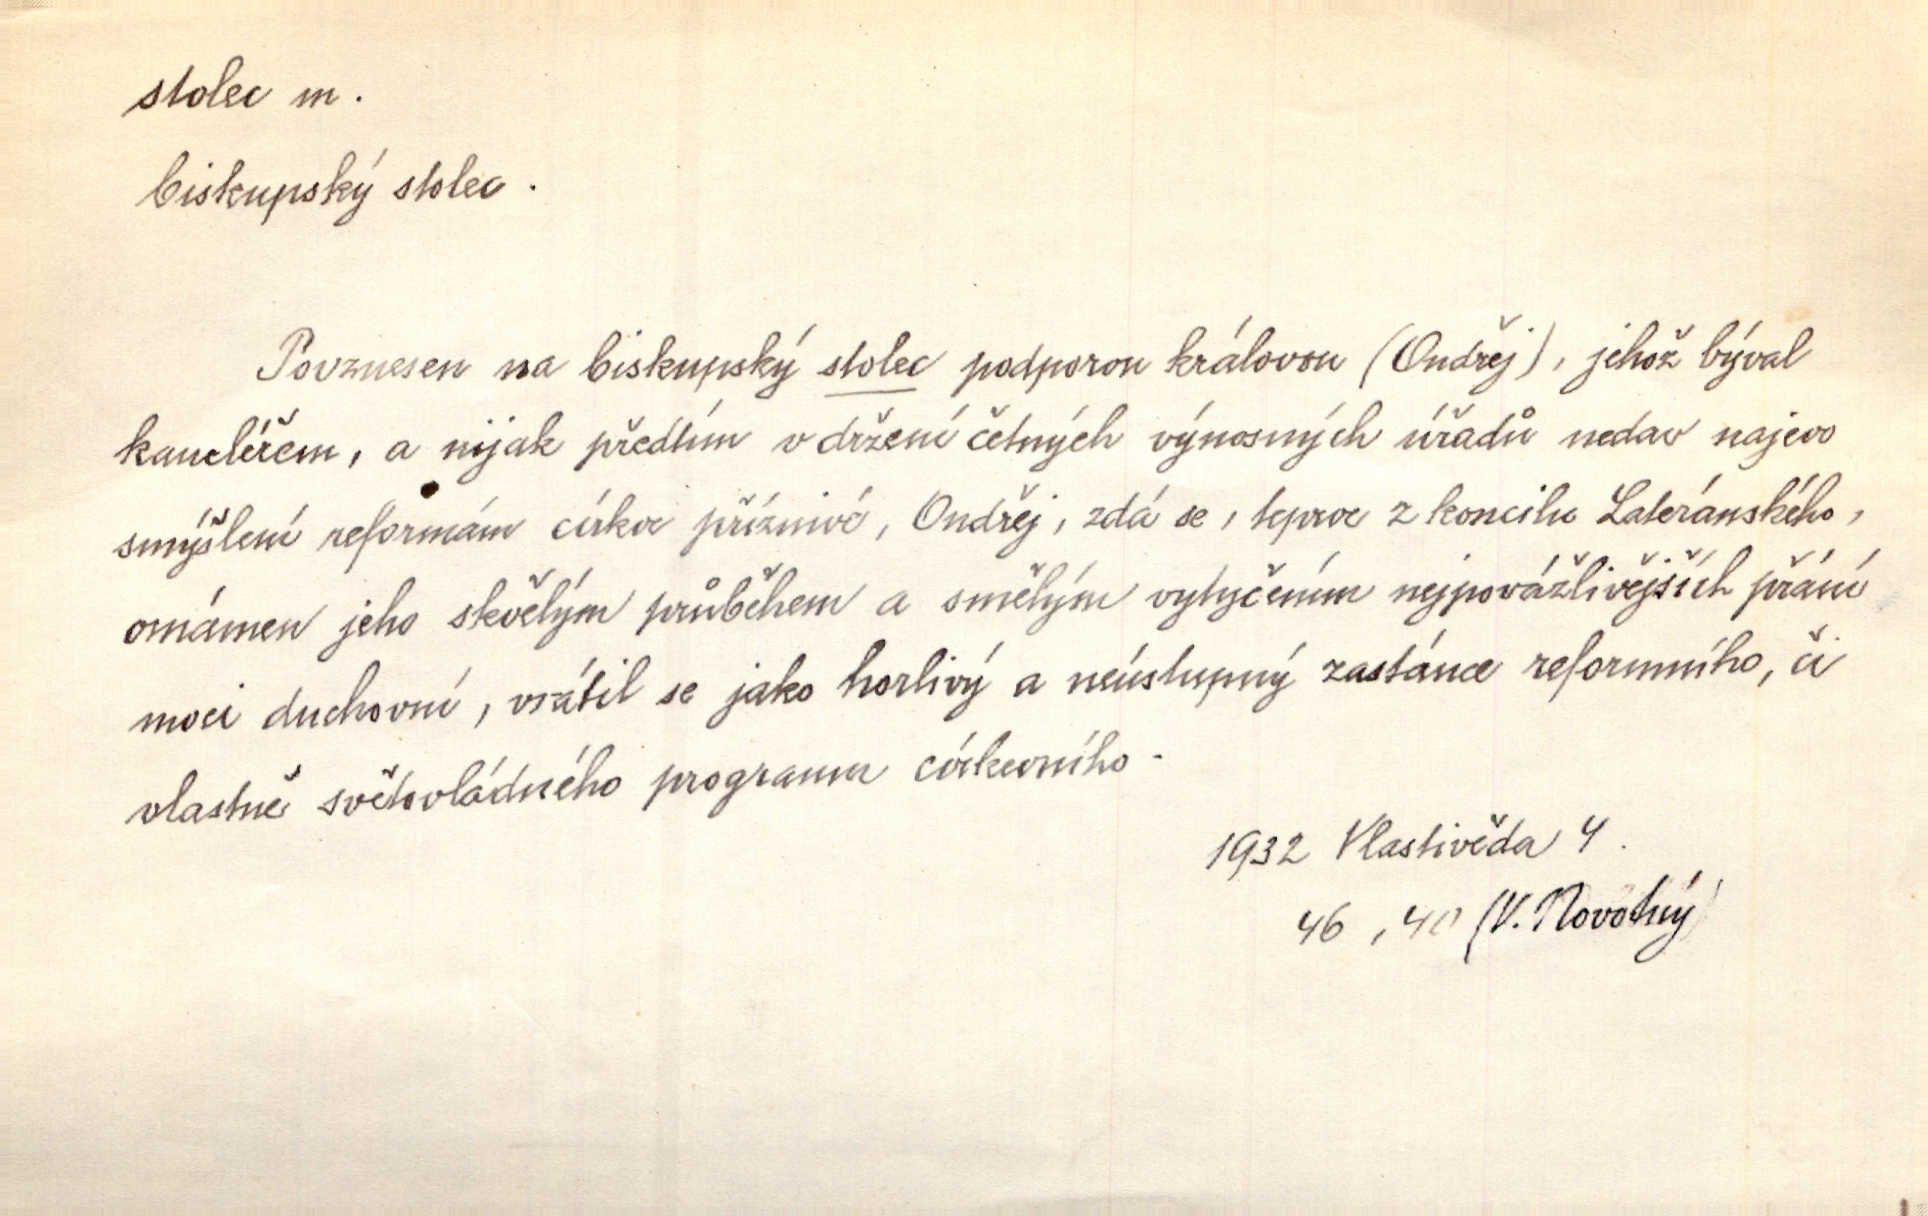 stolec m.
biskupský stolec.
Povznesen na biskupský stolec podporou královou (Ondřej), jehož býval
kancléřem, a nijak předtím v držení četných výnosných úřadů nedav najevo
smýšlení reformám církve příznivé, Ondřej, zdá se, teprve z koncilu Lateránského,
omámen jeho skvělým průběhem a smělým vytyčením nejpovážlivějších přání
moci duchovní, vrátil se jako horlivý a neústupný zastánce reformního, či
vlastně světovládného programu církevního.
1932 Vlastivěda 4.
46, 40 (V. Novotný)